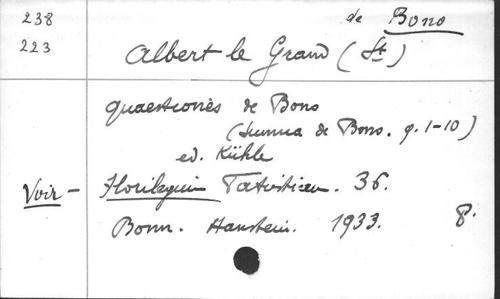 238
223
de Bono
Albert le Grand (St)
quaestiones de Bono
(Summa de Bono. q. 1-10)
ed. Kühle
Voir - Florilegium Patristicum. 36.
Bonn. Hanstein. 1933. 8.